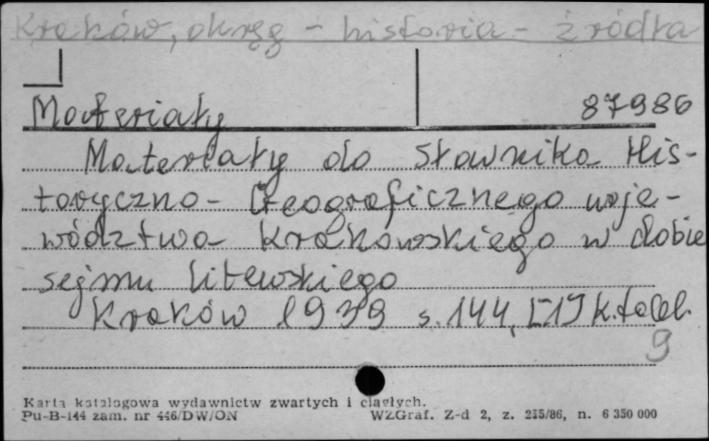 Kraków, okręg - historia - źródła
Materiały 87986
Materiały do Słownika His-
toryczno-Geograficznego woje-
wództwa Krakowskiego w dobie
sejmu litewskiego
Kraków 1939 s. 144, [1] k. tabl.
9
Karta katalogowa wydawnictw zwartych i ciągłych.
Pu-B-144 zam. nr 446/DW/ON WZGraf. Z-d 2, z. 235/86, n. 6 350 000